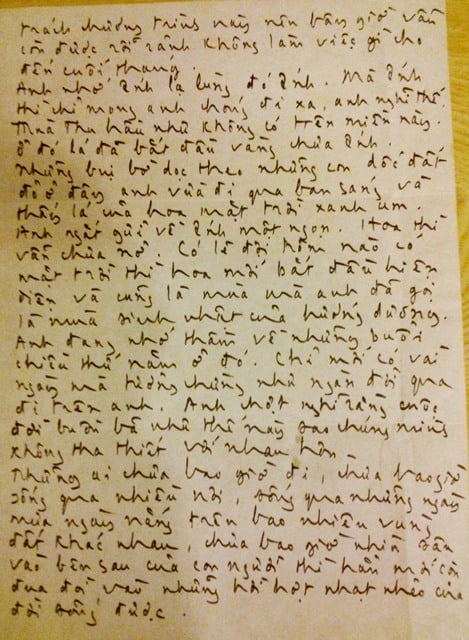 trách chương trình này nên bây giờ vẫn
còn được rỗi rảnh không làm việc gì cho
đến cuối tháng.
Anh nhớ Ánh lạ lùng đó Ánh. Mà Ánh
thì chỉ mong anh chóng đi xa, anh nghĩ thế.
Mùa thu hầu như không có trên miền này.
Ở đó lá đã bắt đầu vàng chưa Ánh.
Những bụi bờ dọc theo những con dốc đất
đỏ ở đây anh vừa đi qua ban sáng và
thấy lá của hoa mặt trời xanh um.
Anh ngắt gửi về Ánh một ngọn. Hoa thì
vẫn chưa nở. Có lẽ đợi hôm nào có
mặt trời thì hoa mới bắt đầu hiện
diện và cũng là mùa mà anh đã gọi
là mùa sinh nhật của hướng dương.
Anh đang nhớ thầm về những buổi
chiều thứ năm ở đó. Chỉ mới có vài
ngày mà tưởng chừng như ngàn đời qua
đi trên anh. Anh chợt nghĩ rằng cuộc
đời buồn bã như thế này sao chúng mình
không tha thiết với nhau hơn.
Những ai chưa bao giờ đi, chưa bao giờ
sống qua nhiều nơi, sống qua những ngày
mưa ngày nắng trên bao nhiêu vùng
đất khác nhau, chưa bao giờ nhìn sâu
vào bên sau của con người thì hẳn mới còn
đua đòi vào những hời hợt nhạt nhẽo của
đời sống được.